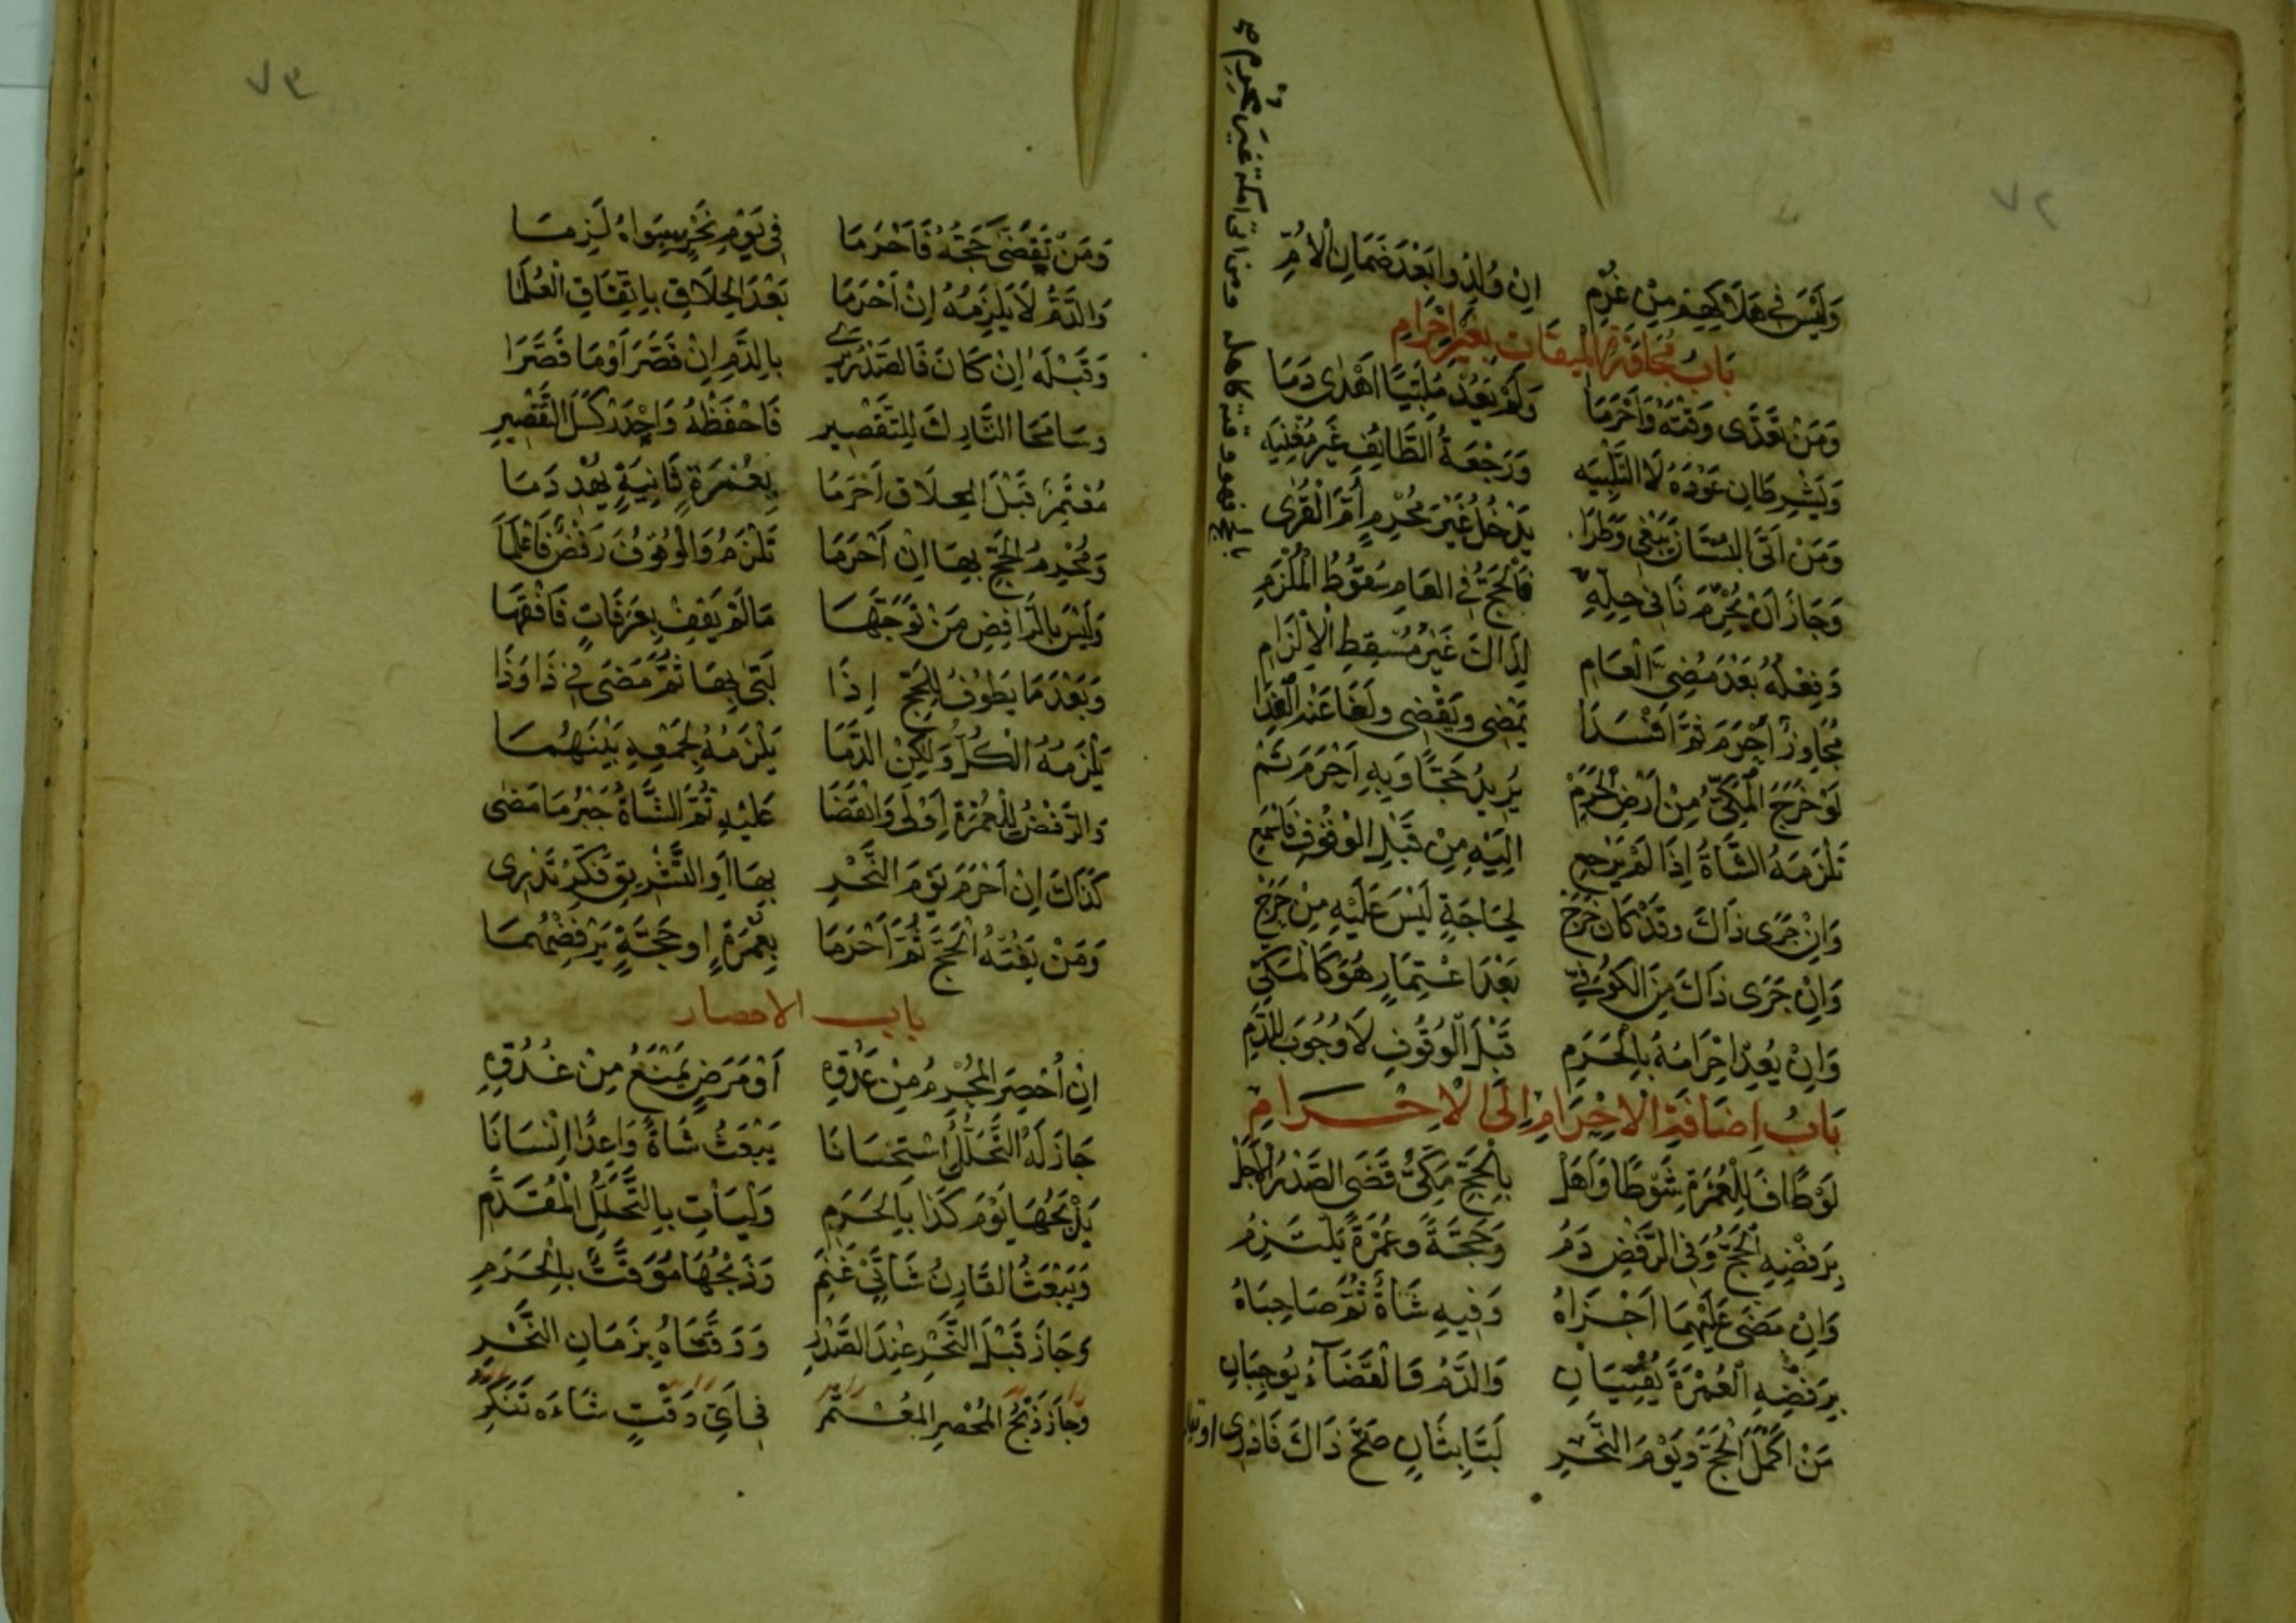 ٧٢
وَلَيْسَ فِي هَلَاكِهِمْ مِنْ غُرْمِ اِنْ وُلِدُوا بَعْدَ ضَمَانِ الْأُمِّ
بَابُ مُجَاوَزَةِ الْمِيقَاتِ بِغَيْرِ اِحْرَامٍ
وَمَنْ تَعَدَّى وَقْتَهُ وَأَحْرَمَا وَلَمْ يَعُدْ مُلَبِّيًا اَهْدٰى دَمَا
وَيَشْرِطَانِ عَوْدَهُ لَا التَّلْبِيَه وَرَجْعَةُ الطَّائِفِ غَيْرُ مُغْنِيَه
وَمَنْ اَتَى الْبُسْتَانَ يَبْغِي وَطَرَا يَدْخُلُ غَيْرَ مُحْرِمٍ أُمَّ الْقُرٰى
وَجَازَ اَنْ يُحْرِمَ نَا فِي حِلِّهِ فَالْحَجُّ فِي الْعَامِ سُقُوطُ الْمُلْزَمِ
وَفِعْلُهُ بَعْدَ مُضِيِّ الْعَامِ لِذَاكَ غَيْرُ مُسْقِطِ الْاِلْزَامِ
مُجَاوِزٌ اَحْرَمَ ثُمَّ اَفْسَدَا يَمْضِي وَيَقْضِي وَلَغَا عَنْهُ الْفِدَا
لَوْ خَرَجَ الْمَكِّيُّ مِنْ اَرْضِ الْحَرَمْ يُرِيدُ حَجًّا وَبِهِ اَحْرَمَ ثَمّْ
تَلْزَمُهُ الشَّاةُ اِذَا لَمْ يَرْجِعِ اِلَيْهِ مِنْ قَبْلِ الْوُقُوفِ فَاسْمَعِ
وَاِنْ جَرَى ذَاكَ وَقَدْ كَانَ خَرَجْ لِحَاجَةٍ لَيْسَ عَلَيْهِ مِنْ حَرَجْ
وَاِنْ جَرَى ذَاكَ مِنَ الْكُوفِيّ بَعْدَ اعْتِمَارٍ هُوَ كَالْمَكِّيّ
وَاِنْ يُعِدْ اِحْرَامَهُ بِالْحَرَمِ قَبْلَ الْوُقُوفِ لَا وُجُوبَ لِلدَّمِ
بَابُ اِضَافَةِ الْاِحْرَامِ اِلَى الْاِحْرَامِ
لَوْ طَافَ لِلْعُمْرَةِ شَوْطًا وَأَهَلْ بِالْحَجِّ مَكِّيٌّ قَضَى الصَّدْرُ الْاَجَلْ
بِرَفْضِهِ الْحَجَّ وَفِي الرَّفْضِ دَمُ وَحَجَّةً وَعُمْرَةً يَلْتَزِمُ
وَاِنْ مَضَى عَلَيْهِمَا اَجْزَاهُ وَفِيهِ شَاةٌ ثُمَّ صَاحِبَاهُ
بِرَفْضِهِ الْعُمْرَةَ يُفْتِيَانِ وَالدَّمُ فَالْقَضَاءُ يُوجِبَانِ
مَنْ اَكْمَلَ الْحَجَّ وَيَوْمَ النَّحْرِ لَبَّا بِثَانٍ صَحَّ ذَاكَ فَادْرِي
٧٣
وَمَنْ تَقَضَّى حَجَّهُ فَاَحْرَمَا فِي يَوْمِ نَحْرٍ سِوَاهُ لَزِمَا
وَالدَّمُ لَا يَلْزَمُهُ اِنْ اَحْرَمَا بَعْدَ الْحِلَاقِ بِاتِّفَاقِ الْعُلَمَا
وَقَبْلَهُ اِنْ كَانَ فَالصَّدْرُ يَرَى بِالدَّمِ اِنْ قَصَّرَ اَوْ مَا قَصَّرَا
وَسَامَحَا التَّارِكَ لِلتَّقْصِيرِ فَاحْفَظْهُ وَاحْذَرْ كَسَلَ التَّقْصِيرِ
مُعْتَمِرٌ قَبْلَ الْحِلَاقِ اَحْرَمَا بِعُمْرَةٍ ثَانِيَةٍ يُهْدِ دَمَا
وَمُحْرِمُ الْحَجِّ بِهَا اِنْ اَحْرَمَا تَلْزَمُ وَالْوُقُوفُ رَفْضٌ فَاعْلَمَا
وَلَيْسَ بِالرَّافِضِ مَنْ تَوَجَّهَا مَا لَمْ يَقِفْ بِعَرَفَاتٍ فَافْقَهَا
وَبَعْدَ مَا يَطُوفُ لِلْحَجِّ اِذَا لَبَّى بِهَا ثُمَّ مَضَى فِي ذَا وَذَا
يَلْزَمُهُ الْكُلُّ وَلٰكِنِ الدَّمَا يَلْزَمُهُ لِجَمْعِهِ بَيْنَهُمَا
وَالرَّفْضُ لِلْعُمْرَةِ اَوْلَى وَالْقَضَا عَلَيْهِ ثُمَّ الشَّاةُ جَبْرُ مَا مَضٰى
كَذَاكَ اِنْ اَحْرَمَ يَوْمَ النَّحْرِ بِهَا اَوِ التَّشْرِيقِ فَكِّرْ تَدْرِي
وَمَنْ يَفُتْهُ الْحَجُّ ثُمَّ اَحْرَمَا بِعُمْرَةٍ اَوْ حَجَّةٍ يَرْفُضْهُمَا
باب الاحصار
اِنْ اُحْصِرَ الْمُحْرِمُ مِنْ عَدُوِّهِ اَوْ مَرَضٍ يَمْنَعُ مِنْ غُدُوِّهِ
جَازَ لَهُ التَّحَلُّلُ اسْتِحْسَانَا يَبْعَثُ شَاةً وَاعِدًا اِنْسَانَا
يَذْبَحُهَا يَوْمَ كَذَا بِالْحَرَمِ وَلْيَأْتِ بِالتَّحَلُّلِ الْمُقَدَّمِ
وَيَبْعَثُ الْقَارِنُ شَاتَيْ غَنَمِ وَذَبْحُهَا مُوَقَّتٌ بِالْحَرَمِ
وَجَازَ قَبْلَ النَّحْرِ عِنْدَ الصَّدْرِ وَوَقَّتَاهُ بِزَمَانِ النَّحْرِ
وَجَازَ ذَبْحُ الْمُحْصَرِ الْمُعْتَمِرِ فِي اَيِّ وَقْتٍ شَاءَهُ تَفَكَّرِ